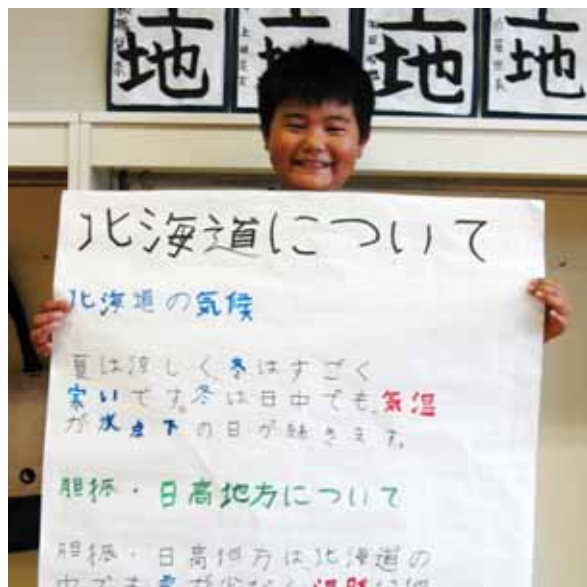 土地
土地
土地
土地
北海道について
北海道の気候
夏は涼しく冬はすごく
寒いです。冬は日中でも、気温
が氷点下の日が続きます。
胆振・日高地方について
胆振・日高地方は北海道の
中でも雪が少なく温暖